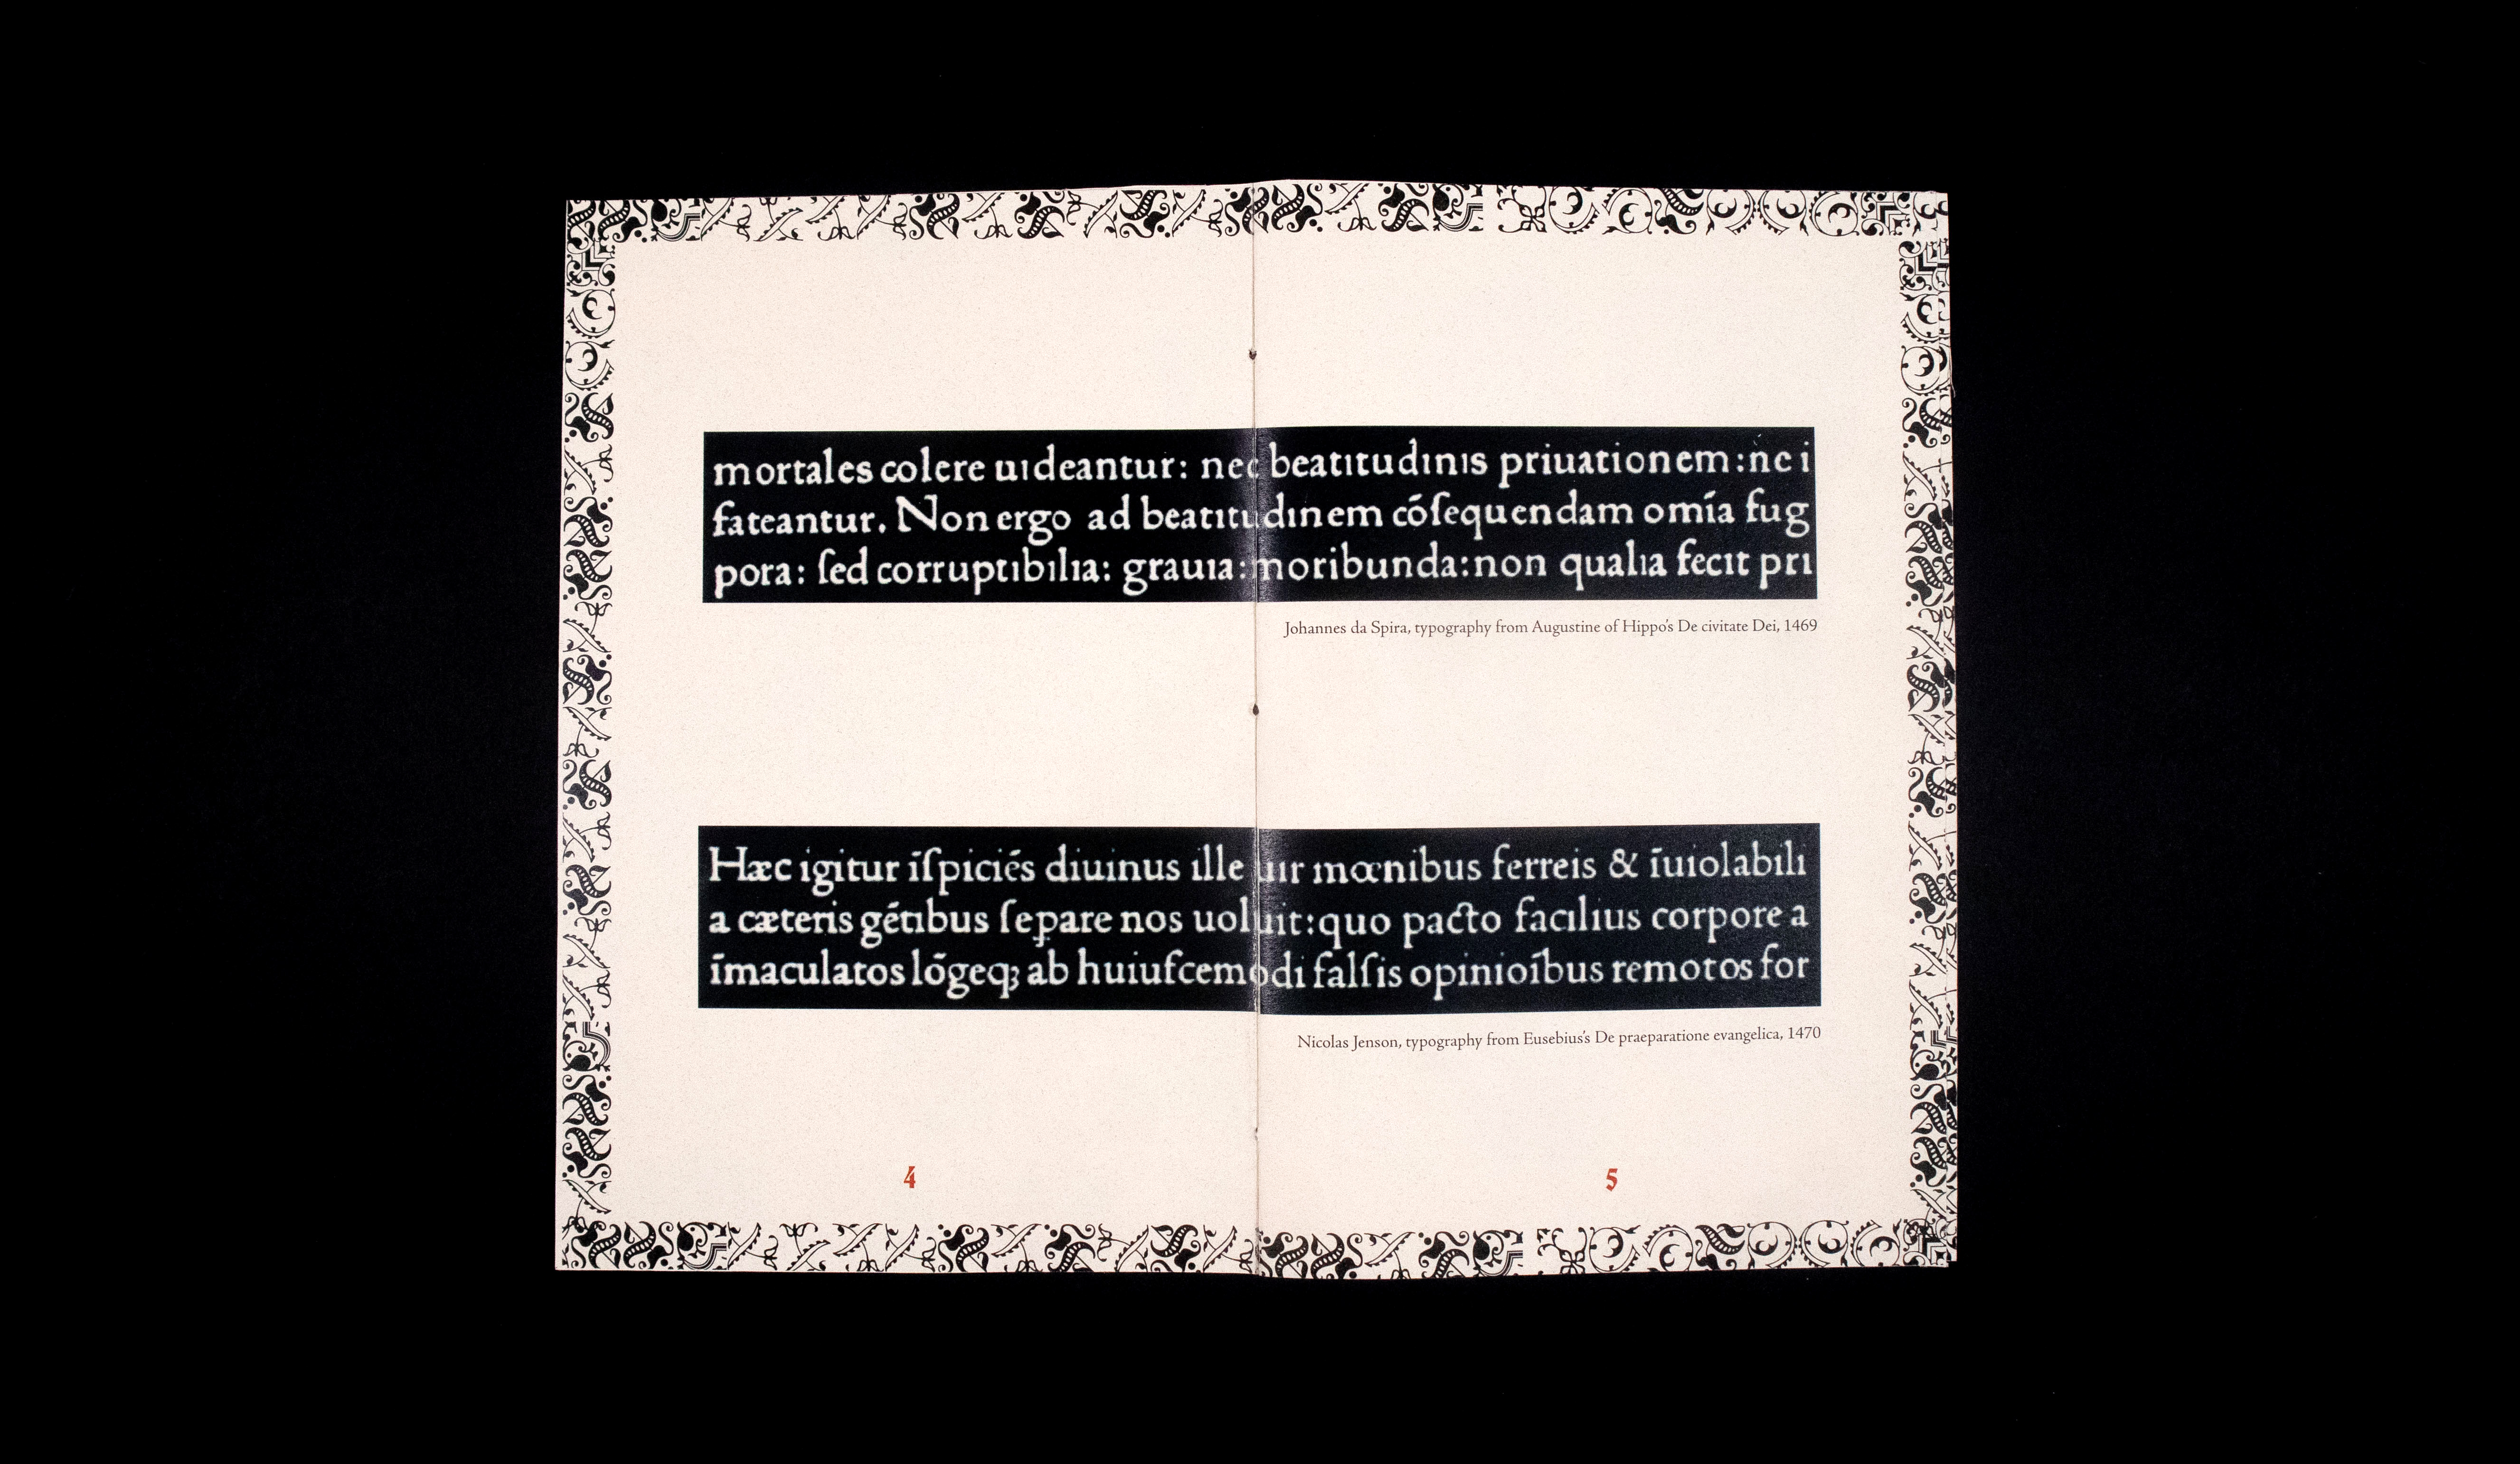 mortales colere uıdeantur: nec beatıtudınıs priuationem:nc i
fateantur. Non ergo ad beatıtudınem cóſequendam omía fug
pora: ſed corruptıbılıa: grauıa: moribunda:non qualıa fecıt prı
Johannes da Spira, typography from Augustine of Hippo's De civitate Dei, 1469
Hæc igitur īſpiciés diuinus ılle uır mœnibus ferreis & īuıolabılı
a cæteris gétıbus ſeꝑare nos uoluit:quo pacto facılıus corpore a
īmaculatos lōgeqꝫ ab huiuſcemodı falſis opinioībus remotos for
Nicolas Jenson, typography from Eusebius's De praeparatione evangelica, 1470
4
5